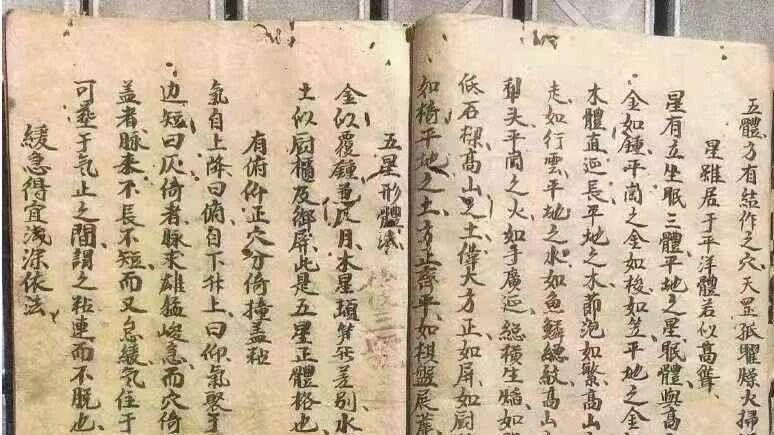 五體方有結作之穴天罡孤曜燥火掃
星雖居于平洋體若似高聳
星有立坐眠三體平地之星眠體與高
金如鐘平岡之金如梭如笠平地之金
木體直延長平地之木節泡如繁高山
走如行雲平地之水如魚鱗縐紋高山
犁头平岡之火如手廣延縱橫生焰如
低石樑高山之土偉大方正如屏如厨
如椅平地之土方正齊平如棋盤展
五星形體
金似覆鐘月木星頭差別水
土似厨櫃及御屏此是五星正體格也
有俯仰正穴分倚撞盖粘
氣自上降曰俯自下升上曰仰氣聚于
边短曰仄倚者脉来雄猛峻急而穴倚
盖者脉来不長不短而又急緩气住于
可塟于气止之間謂之粘連而不脱也
緩急得宜浅深依法